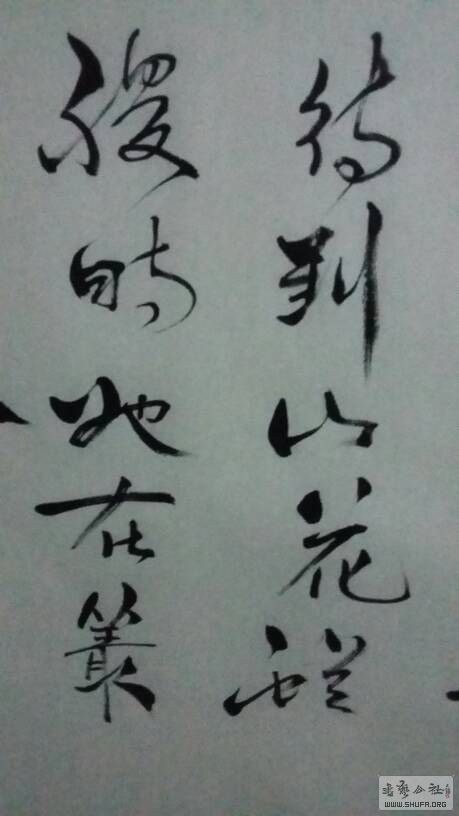 待到山花烂
漫時她在叢
书艺公社
WWW.SHUFA.ORG